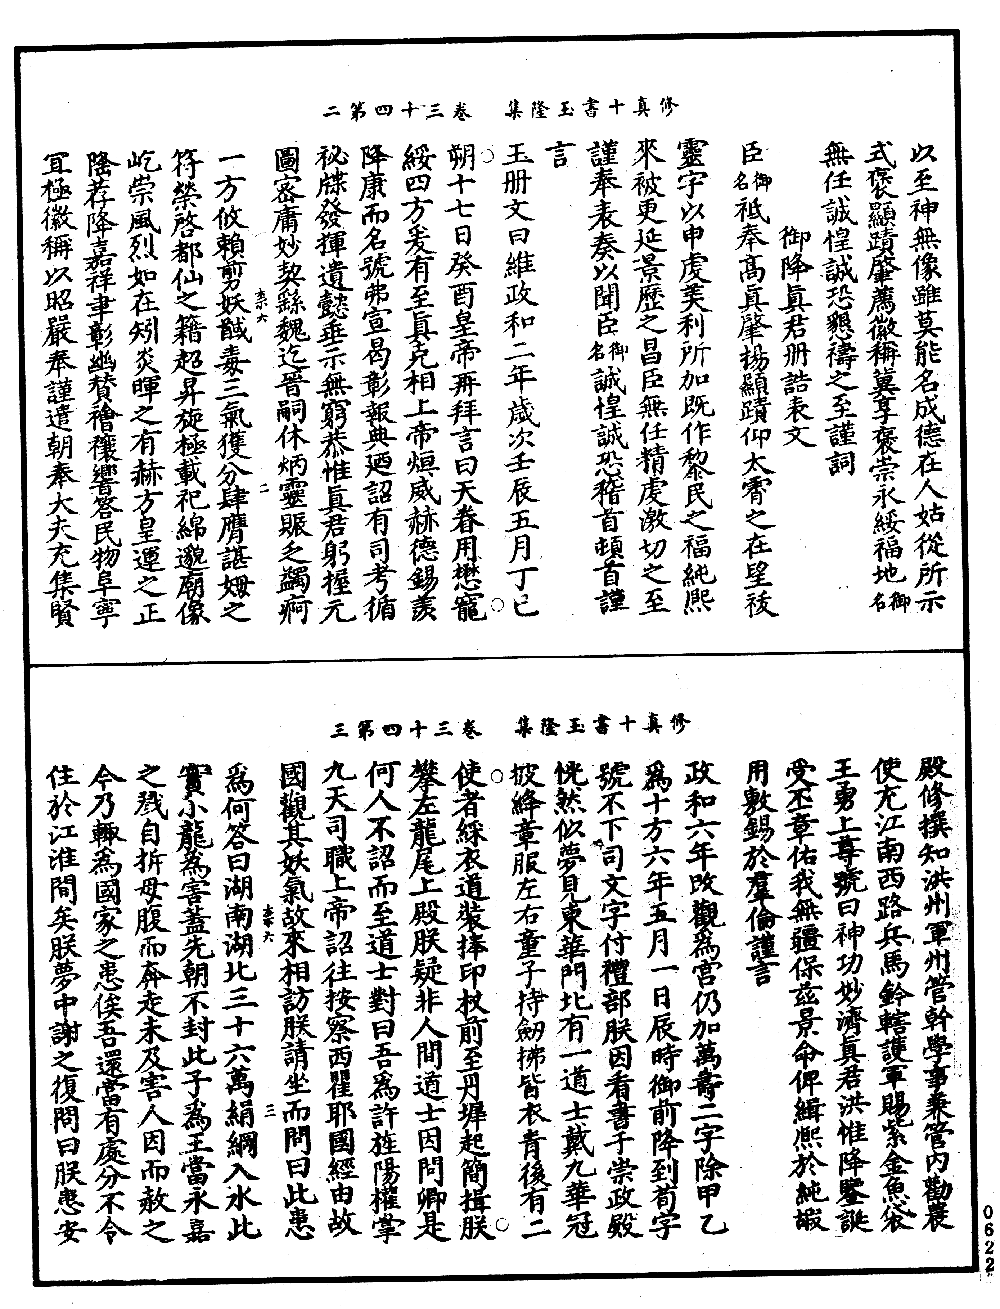 修真十書玉隆集　卷三十四第二
以至神無像雖莫能名成德在人姑從所示
式褒顯蹟肇薦徽稱冀享褒崇永綏福地御名
無任誠惶誠恐懇禱之至謹詞
御降真君册誥表文
臣御名祗奉高真肇揚顯蹟仰太霄之在望祓
靈宇以申虔美利所加既作黎民之福純熙
來被更延景歷之昌臣無任精虔激切之至
謹奉表奏以聞臣御名誠惶誠恐稽首頓首謹
言
玉册文曰維政和二年歲次壬辰五月丁巳
朔十七日癸酉皇帝再拜言曰天眷用懋寵
綏四方爰有至真克相上帝烜威赫德錫羨
降康而名號弗宣曷彰報典廼詔有司考循
祕牒發揮遺懿垂示無窮恭惟真君躬握元
圖密庸妙契繇魏迄晉嗣休炳靈賑乏蠲痾
一方攸賴剪妖馘毒三氣獲分肆膺諶姆之
符榮啓都仙之籍超昇旋極載祀綿邈廟像
屹崇風烈如在矧炎暉之有赫方皇運之正
隆荐降嘉祥聿彰幽贊禬禳響答民物阜寧
宜極徽稱以昭嚴奉謹遣朝奉大夫充集賢
柰六
二
修真十書玉隆集　卷三十四第三
殿修撰知洪州軍州管幹學事兼管內勸農
使充江南西路兵馬鈐轄護軍賜紫金魚袋
王勇上尊號曰神功妙濟真君洪惟降鑒誕
受丕章佑我無疆保茲景命俾緝熙於純嘏
用敷錫於羣倫謹言
政和六年改觀爲宮仍加萬壽二字除甲乙
爲十方六年五月一日辰時御前降到荀字
號不下司文字付禮部朕因看書于崇政殿
恍然似夢見東華門北有一道士戴九華冠
披絳章服左右童子持劒拂皆衣青後有二
使者綵衣道裝捧印杖前至丹墀起簡揖朕
攀左龍尾上殿朕疑非人間道士因問卿是
何人不詔而至道士對曰吾爲許旌陽權掌
九天司職上帝詔往按察西瞿耶國經由故
國觀其妖氣故來相訪朕請坐而問曰此患
爲何答曰湖南湖北三十六萬絹綱入水此
實小龍爲害蓋先朝不封此子爲王當永嘉
之戮自折母腹而奔走未及害人因而赦之
今乃輙爲國家之患俟吾還當有處分不令
住於江淮間矣朕夢中謝之復問曰朕患安
柰六
三
0622